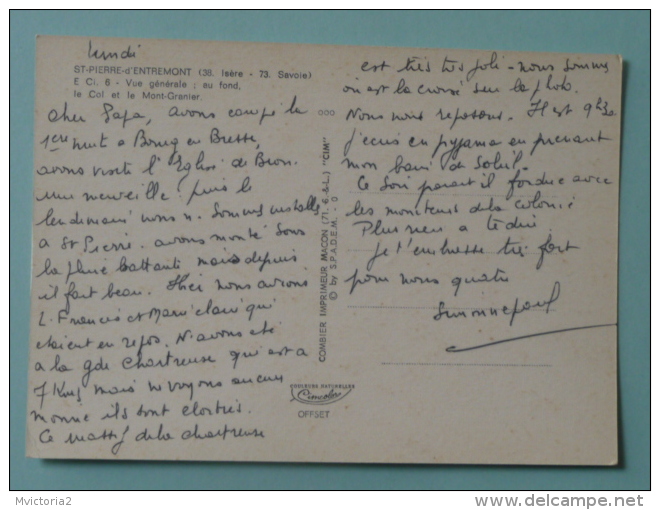 lundi
ST-PIERRE-d'ENTREMONT (38. Isère - 73. Savoie)
E Ci. 6 - Vue générale ; au fond,
le Col et le Mont-Granier.
cher Papa, avons campé la
1ère nuit à Bourg en Bresse,
avons visité l'Eglise de Brou.
une merveille puis le
lendemain nous n. sommes installés
à St Pierre. avons monté sous
la pluie battante mais depuis
il fait beau. Hier nous avions
Francis et Marie claire qui
étaient en repos. N. avons été
à la gde Chartreuse qui est à
7 Km mais ne voyons aucun
moine ils sont cloîtrés.
Ce massif de la chartreuse
est très très joli - nous sommes
où est la croix sur la photo.
Nous nous reposons. Il est 9h30
j'écris en pyjama en prenant
mon bain de soleil.
Ce soir parait il fondue avec
les moniteurs de la colonie
Plus rien à te dire
Je t'embrasse très fort
pour nous quatre
Simonne
COMBIER IMPRIMEUR MACON (71. S.-&-L.) "CIM"
© by S.P.A.D.E.M. - 0
COULEURS NATURELLES
Cimcolor
OFFSET
Mvictoria2
delcampe.net